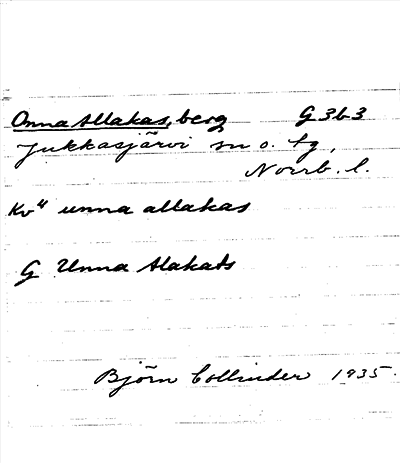 Onna Allakas, berg G3b3
Jukkasjärvi sn o. tg,
Norrb. l.
Kv" unna allakas
G Unna Alakats
Björn Collinder 1935.